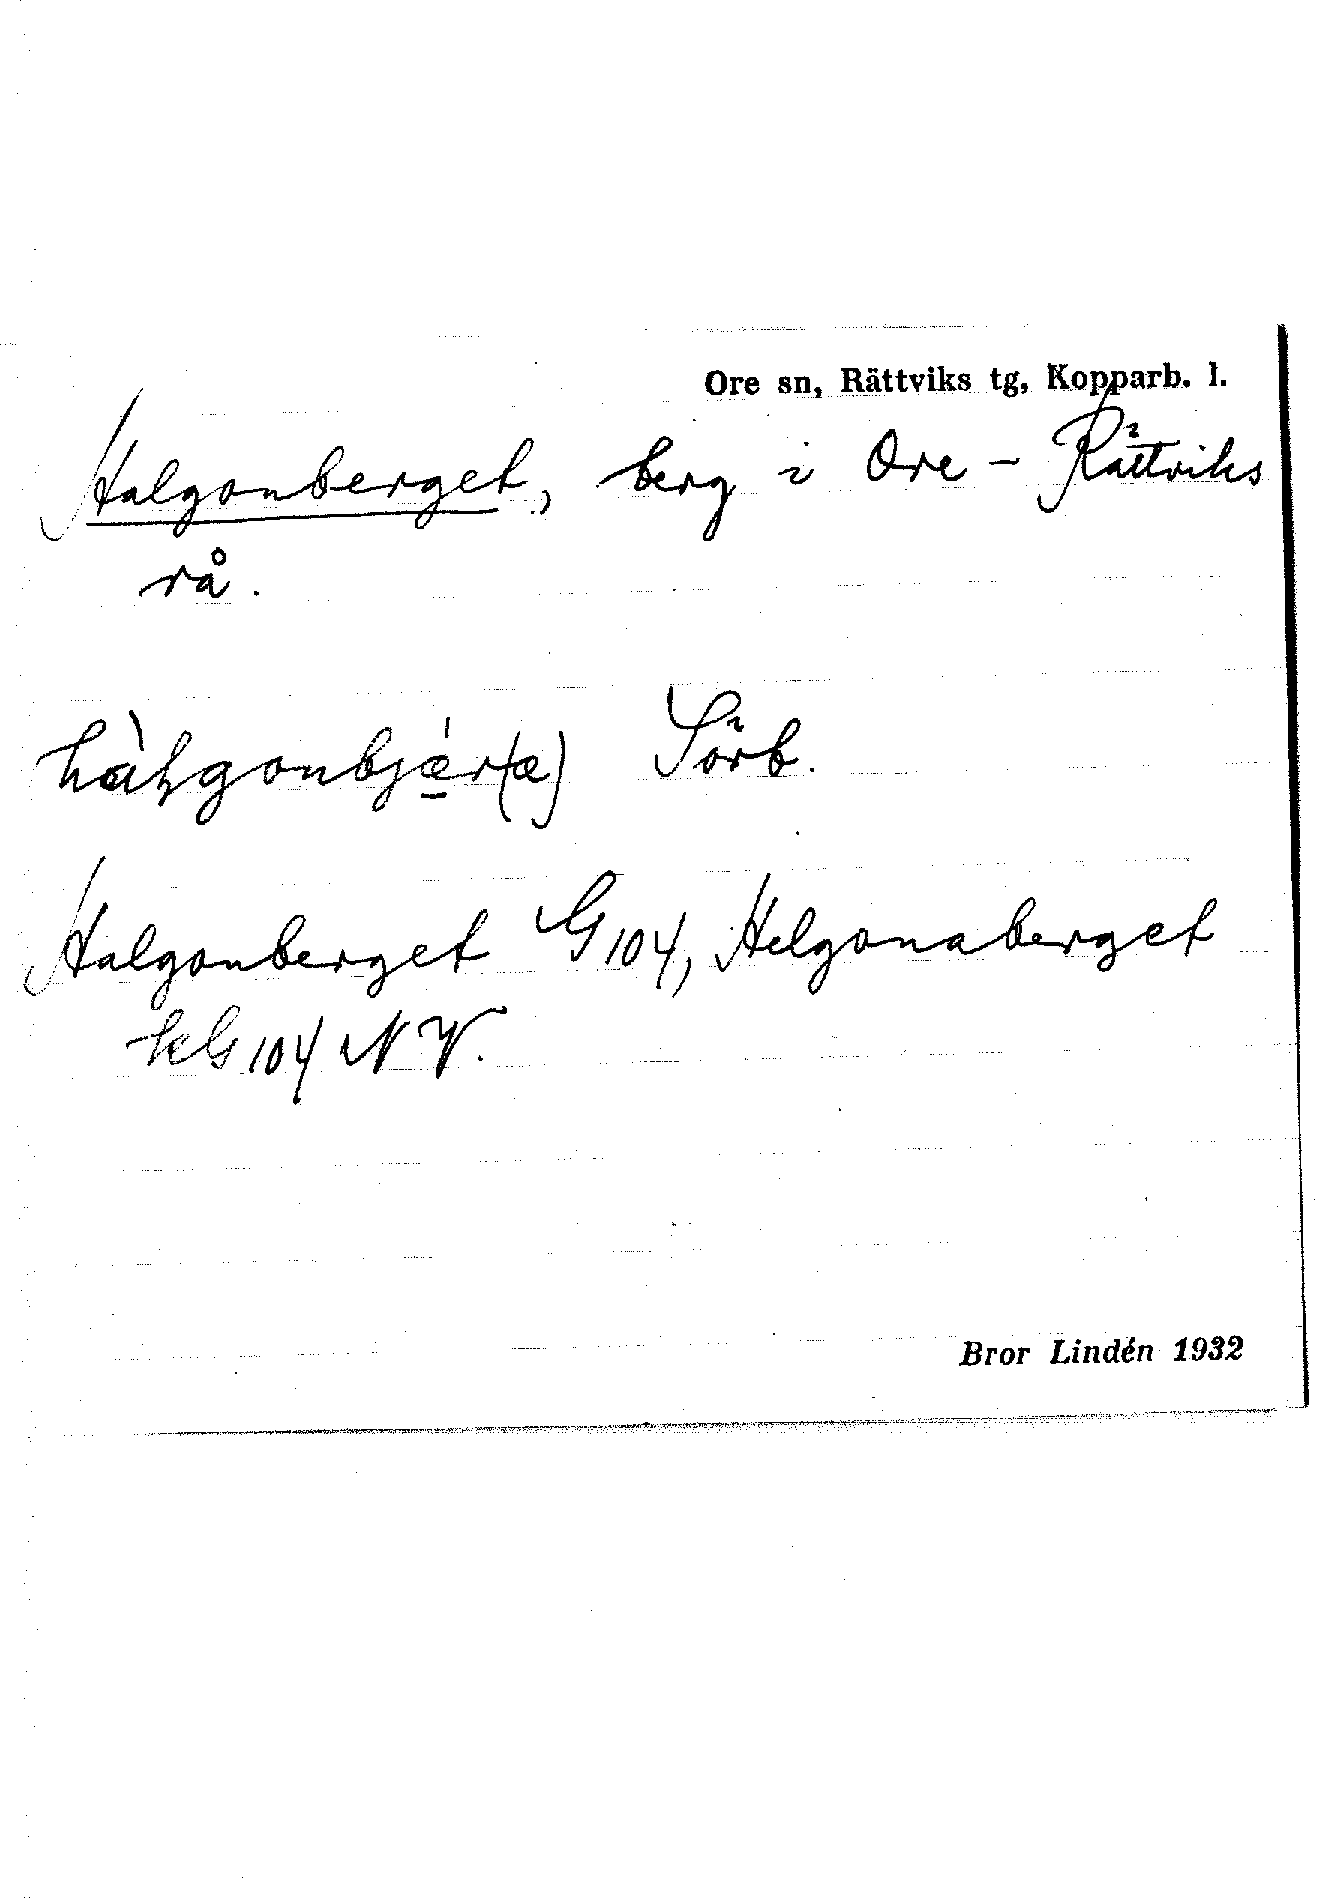 Ore sn, Rättviks tg, Kopparb. l.
Halgonberget, berg i Ore - Rättviks
rå.
Sörb.
Halgonberget G 104, Helgonaberget
kG 104 NV.
Bror Lindén 1932